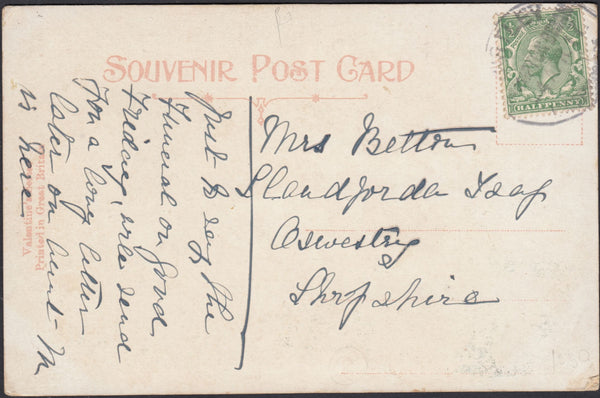 SOUVENIR POST CARD
HALFPENNY
Just to say the
Funeral on Good
Friday, will send
You a long letter
later on Aunt M
is here
Mrs Betton
Llandforda Isaf
Oswestry
Shropshire
Valentine's
Printed in Great Britain